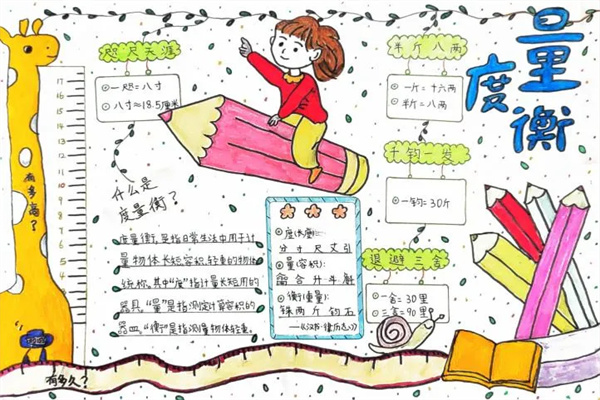 度量衡
咫尺天涯
⊙一咫=八寸
⊙八寸≈18.5厘米
半斤八两
⊙一斤=十六两
⊙半斤=八两
千钧一发
⊙一钧=30斤
退避三舍
⊙一舍=30里
⊙三舍=90里
什么是
度量衡？
度量衡,是指日常生活中用于计
量物体长短容积、轻重的物体
统称,其中“度”指计量长短用的
器具,“量”是指测定计算容积的
器皿,“衡”是指测量物体轻重。
⊙度(长度):
分寸尺丈引
⊙量(容积):
龠合升斗斛
⊙衡(重量):
铢两斤钧石
——《汉书·律历志》
有多高？
有多久？
17
16
15
14
13
12
11
10